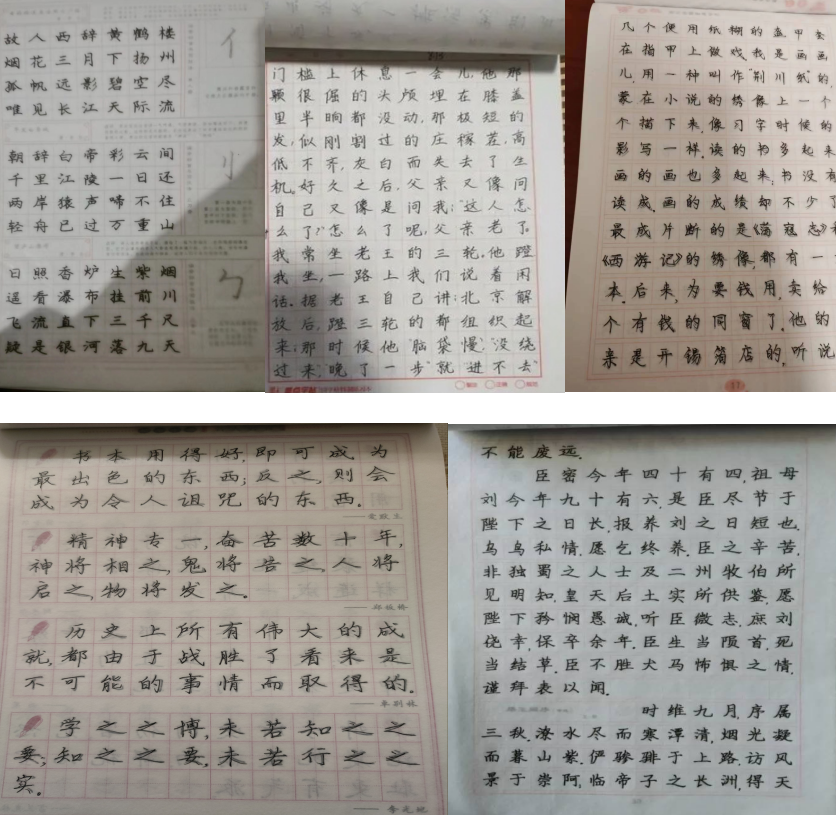 故人西辞黄鹤楼
烟花三月下扬州
孤帆远影碧空尽
唯见长江天际流
朝辞白帝彩云间
千里江陵一日还
两岸猿声啼不住
轻舟已过万重山
日照香炉生紫烟
遥看瀑布挂前川
飞流直下三千尺
疑是银河落九天
亻
刂
勹
门槛上休息一会儿,他那
颗很倔的头颅埋在膝盖
里半晌都没动,那极短的
发,似刚割过的庄稼茬,高
低不齐,灰白而失去了生
机。好久之后,父亲又像问
自己又像是问我:“这人怎
么了?”怎么了呢,父亲老了。
我常坐老王的三轮。他蹬
我坐,一路上我们说着闲
话。据老王自己讲:北京解
放后,蹬三轮的都组织起
来;那时候他“脑袋慢”“没绕
过来”“晚了一步”“就“进不去”
几个便用纸糊的盔甲套
在指甲上做戏。我是画画
儿,用一种叫作“荆川纸”的,
蒙在小说的绣像上一个
个描下来,像习字时候的
影写一样。读的书多起来
画的画也多起来;书没有
读成,画的成绩却不少了
最成片断的是《荡寇志》和
《西游记》的绣像,都有一
本。后来,为要钱用,卖给
个有钱的同窗了。他的
亲是开锡箔店的,听说
11
书本用得好,即可成为
最出色的东西;反之,则会
成为令人诅咒的东西。
——爱默生
精神专一,奋苦数十年,
神将相之,鬼将告之,人将
启之,物将发之。
历史上所有伟大的成
就,都由于战胜了看来是
不可能的事情而取得的。
——卓别林
学之之博,未若知之之
要;知之之要,未若行之之
实。
不能废远。
臣密今年四十有四,祖母
刘今年九十有六,是臣尽节于
陛下之日长,报养刘之日短也。
乌鸟私情,愿乞终养。臣之辛苦,
非独蜀之人士及二州牧伯所
见明知,皇天后土实所供鉴。愿
陛下矜悯愚诚,听臣微志,庶刘
侥幸,保卒余年。臣生当陨首,死
当结草。臣不胜犬马怖惧之情,
谨拜表以闻。
时维九月,序属
三秋。潦水尽而寒潭清,烟光凝
而暮山紫。俨骖騑于上路,访风
景于崇阿;临帝子之长洲,得天